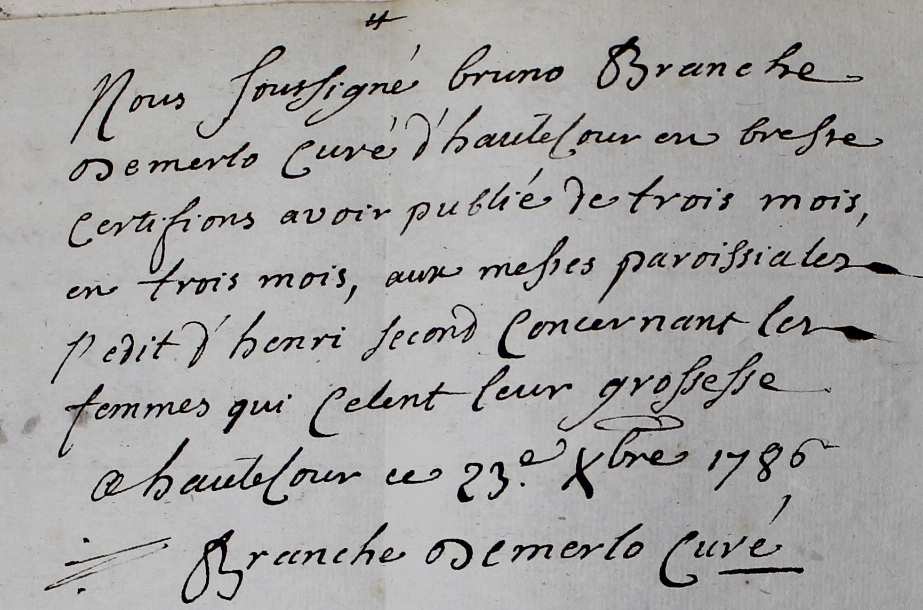 Nous soussigné bruno Branche
Demerlo Curé d'hautecour en bresse
Certifions avoir publié de trois mois,
en trois mois, aux messes paroissiales
l'edit d'henri second Concernant les
femmes qui Celent leur grossesse
a hautecour ce 23.e Xbre 1786
Branche Demerlo Curé